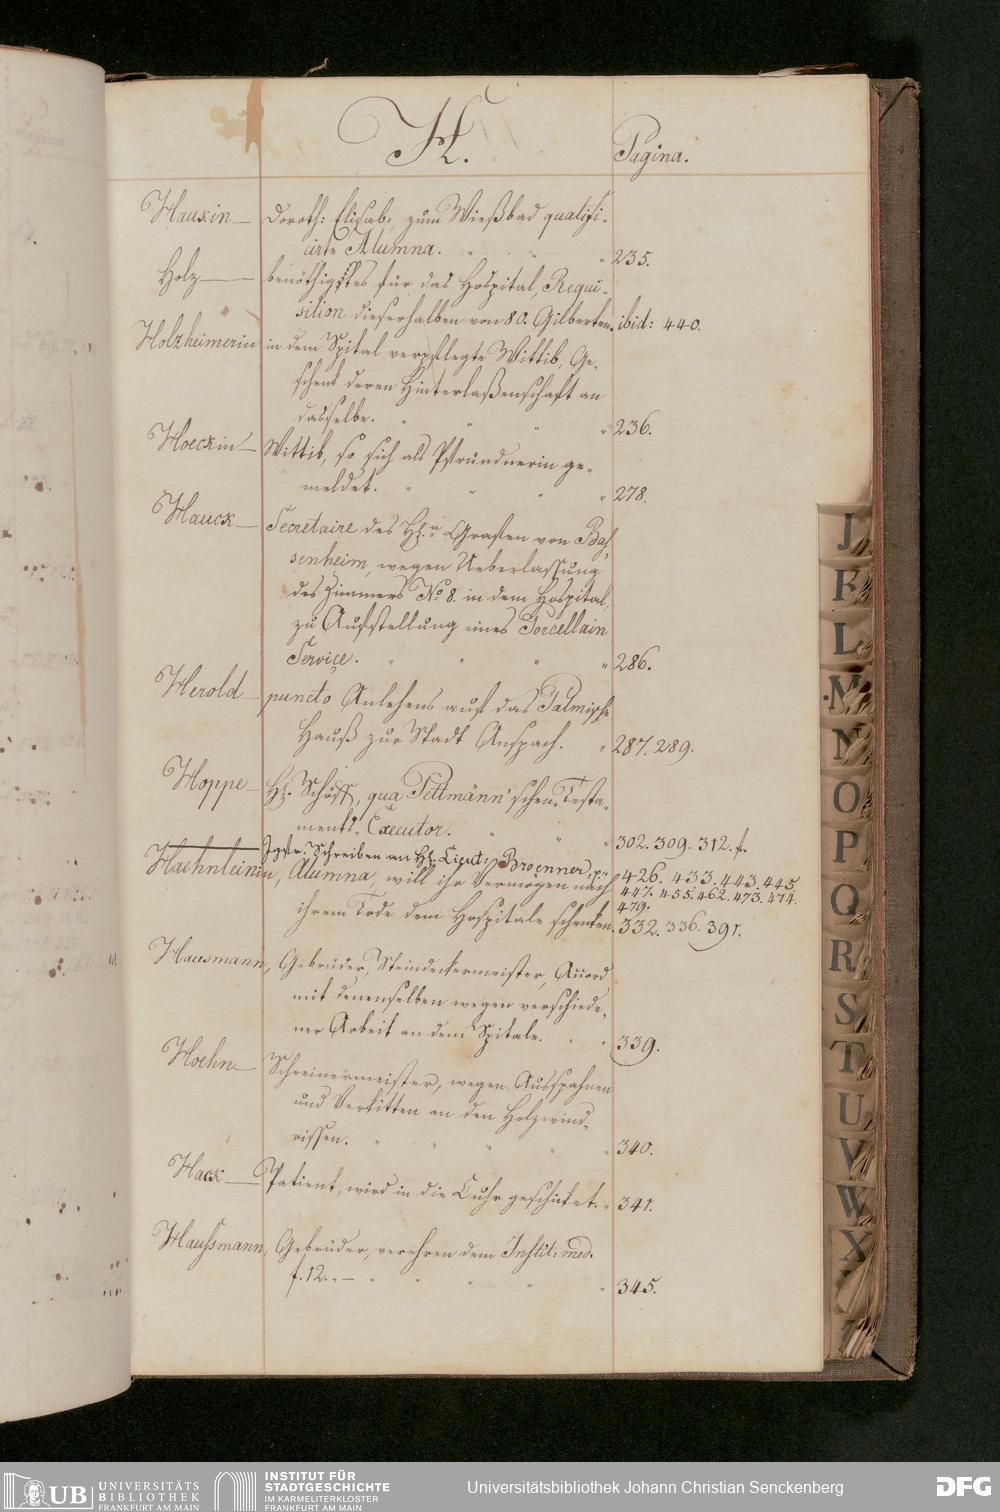 H.
Pagina.
Hauxin— Doroth: Elisab:, zum Wießbad qualifi-
cirte Alumna. 235.
Holz— benöthigstes für das Hospital, Requi-
sition dieserhalben von 80. Gilberten. ibid: 440.
Holzheimerin in dem Spital verpflegte Wittib, Ge-
schenk deren Hinterlaßenschaft an
dasselbe. 236.
Hoeckin— Wittib, so sich als Pfründnerin ge-
meldet. 278.
Hauck— Secretaire des H. Grafen von Baß-
senheim, wegen Ueberlassung
des Zimmers No 8. in dem Hospital,
zu Aufstellung eines Porcellain
Service. 286.
Herold— puncto Anlehens auf das Palmische
Hauß zur Stadt Anspach. 287. 289.
Hoppe— H. Schöff, qua Pettmänn'schen Testa-
ments Executor. 302. 309. 312. f.
Jgfr. Schreiben an H. Lieut: Broenner, 426. 433. 443. 445.
Haehnleinin, Alumna, will ihr Vermögen nach 447. 455. 462. 473. 474.
479.
ihrem Tode dem Hospitale schenken. 332. 336. 391.
Hausmann, Gebrüder, Steindeckermeister, Accord
mit denenselben wegen verschiede-
ner Arbeit an dem Spitale. 339.
Hoehn— Schreinermeister, wegen Ausspahnen
und Verkitten an den Holzwind-
rissen. 340.
Hack— Patient, wird in die Cuhr geschicket. 341.
Haussmann, Gebrüder, verehren dem Instit: med.
f. 12. — 345.
J
K
L
M
N
O
P
Q
R
S
T
U
V
W
X
UB UNIVERSITÄTS
BIBLIOTHEK
FRANKFURT AM MAIN
INSTITUT FÜR
STADTGESCHICHTE
IM KARMELITERKLOSTER
FRANKFURT AM MAIN
Universitätsbibliothek Johann Christian Senckenberg
DFG